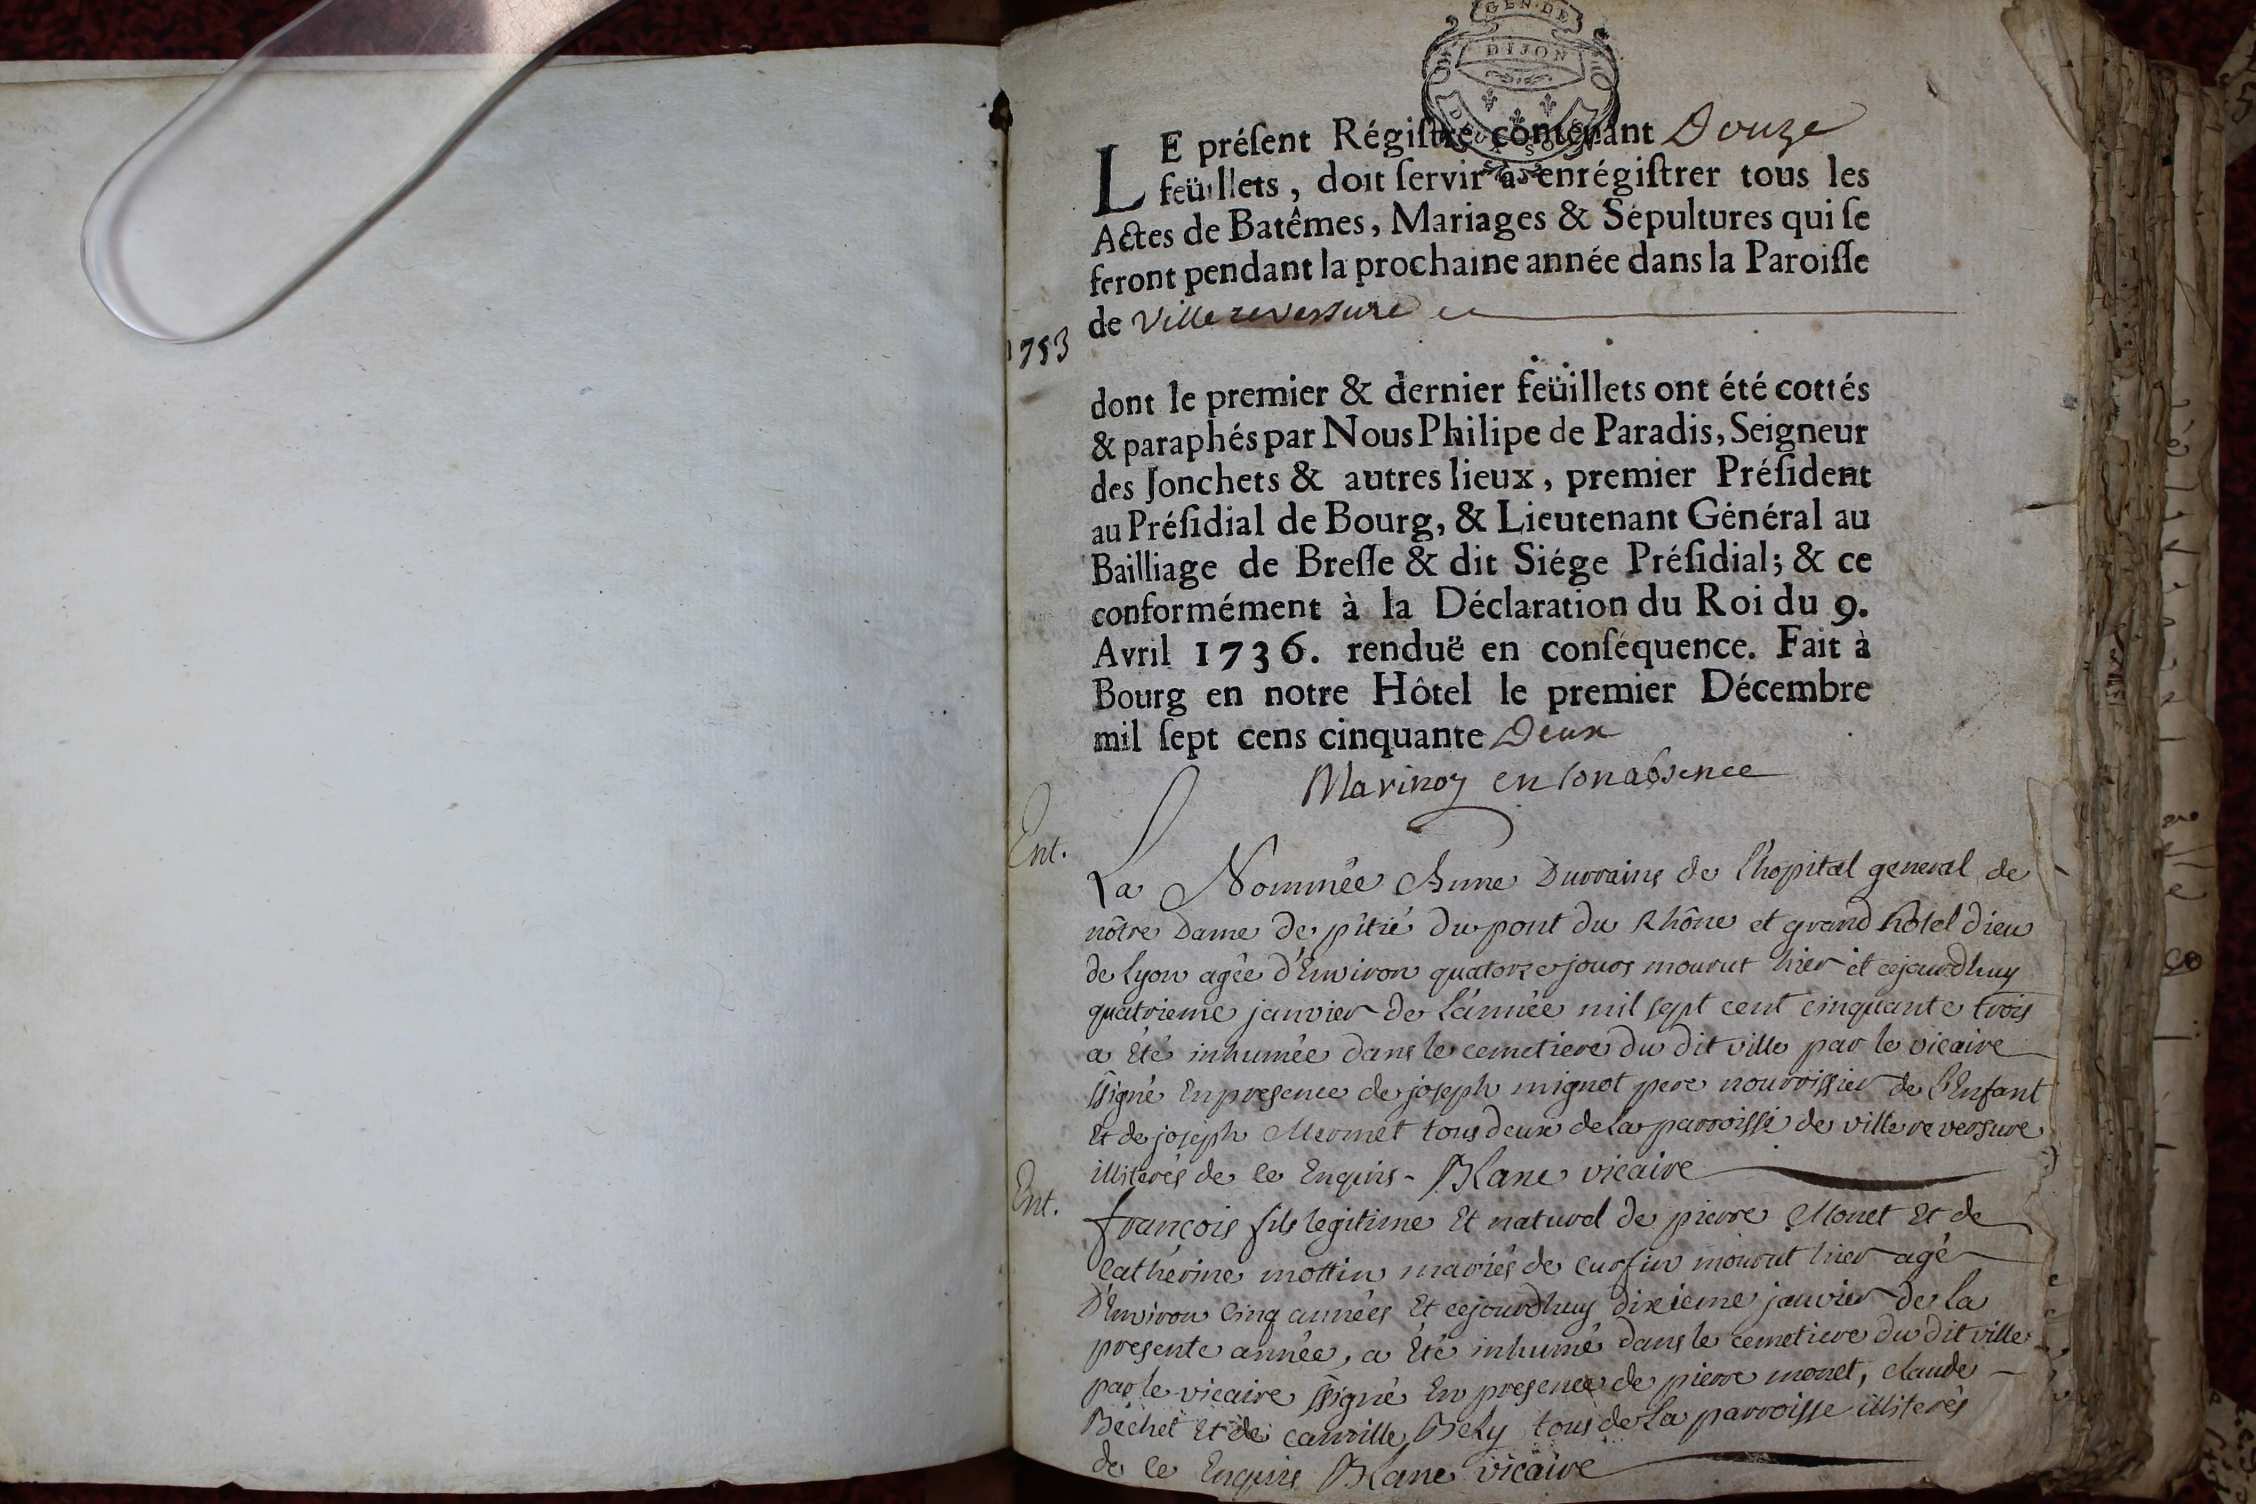 GEN. DE
DIJON
DEUX SOLS
LE préſent Régiſtre contenant Douze
feüillets, doit ſervir à enrégiſtrer tous les
Actes de Batêmes, Mariages & Sépultures qui ſe
feront pendant la prochaine année dans la Paroiſſe
de Villereversure
1753
dont le premier & dernier feüillets ont été cottés
& paraphés par Nous Philipe de Paradis, Seigneur
des Jonchets & autres lieux, premier Préſident
au Préſidial de Bourg, & Lieutenant Général au
Bailliage de Breſſe & dit Siége Préſidial; & ce
conformément à la Déclaration du Roi du 9.
Avril 1736. renduë en conſéquence. Fait à
Bourg en notre Hôtel le premier Décembre
mil ſept cens cinquante Deux
en son absence
Ent.
La Nommée Anne Durrains de l'hopital general de
nôtre Dame de pitié du pont du Rhône et grand hôtel dieu
de Lyon agée d'Environ quatorze jours mourut hier et cejourdhuy
quatrieme janvier de l'année mil sept cent cinquante trois
a été inhumée dans le cemetiere du dit ville par le vicaire
ssigné En presence de joseph mignot pere nourrissier de l'Enfant
Et de joseph Mermet tous deux de la parroisse de villereversure
illiterés de ce Enquis - Blanc vicaire
Ent.
françois fils legitime Et naturel de pierre Monet Et de
Catherine mottin mariés de Curfin mourut hier agé
D'Environ Cinq années Et cejourdhuy dixieme janvier de la
presente année, a été inhumé dans le cemetiere du dit ville
par le vicaire ssigné En presence de pierre monet, claude
Béchet Et de camille Bely tous de la parroisse illiterés
de ce Enquis Blanc vicaire